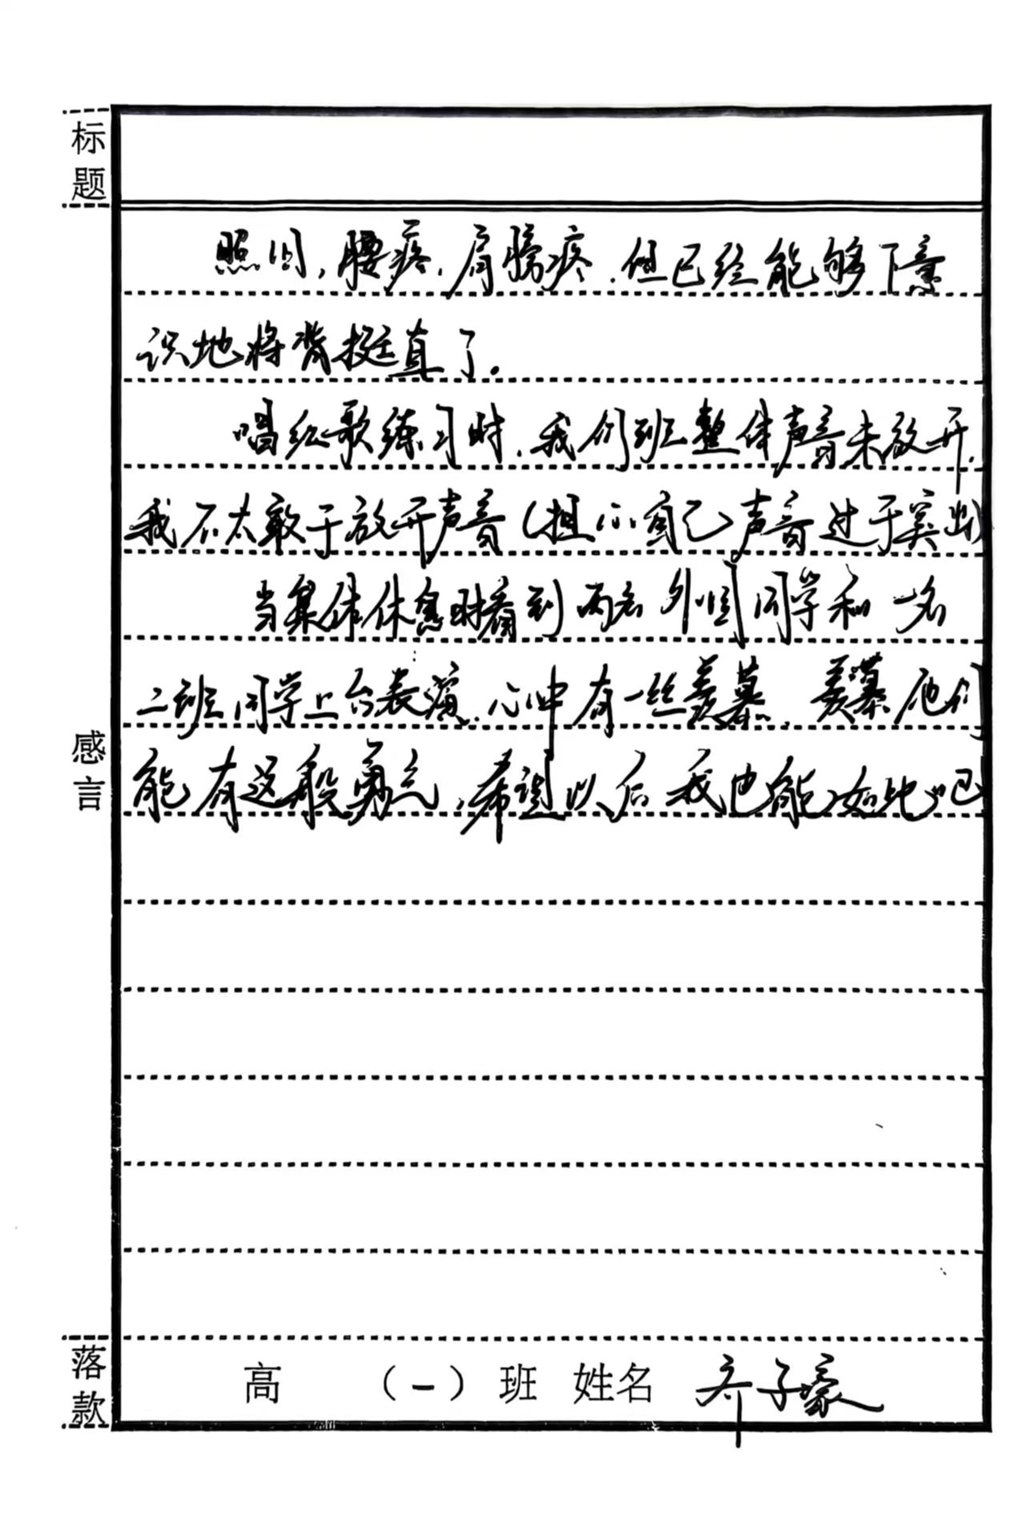 标题
照旧，腰疼，肩膀疼，但已经能够下意
识地将背挺直了。
唱红歌练习时，我们班整体声音未放开，
我不太敢于放开声音（担心自己声音过于突出）
当集体休息时看到两名外国同学和一名
二班同学上台表演，心中有一丝羡慕，羡慕他们
能有这般勇气，希望以后我也能如此吧
感言
落款
高 （一）班 姓名 齐子豪